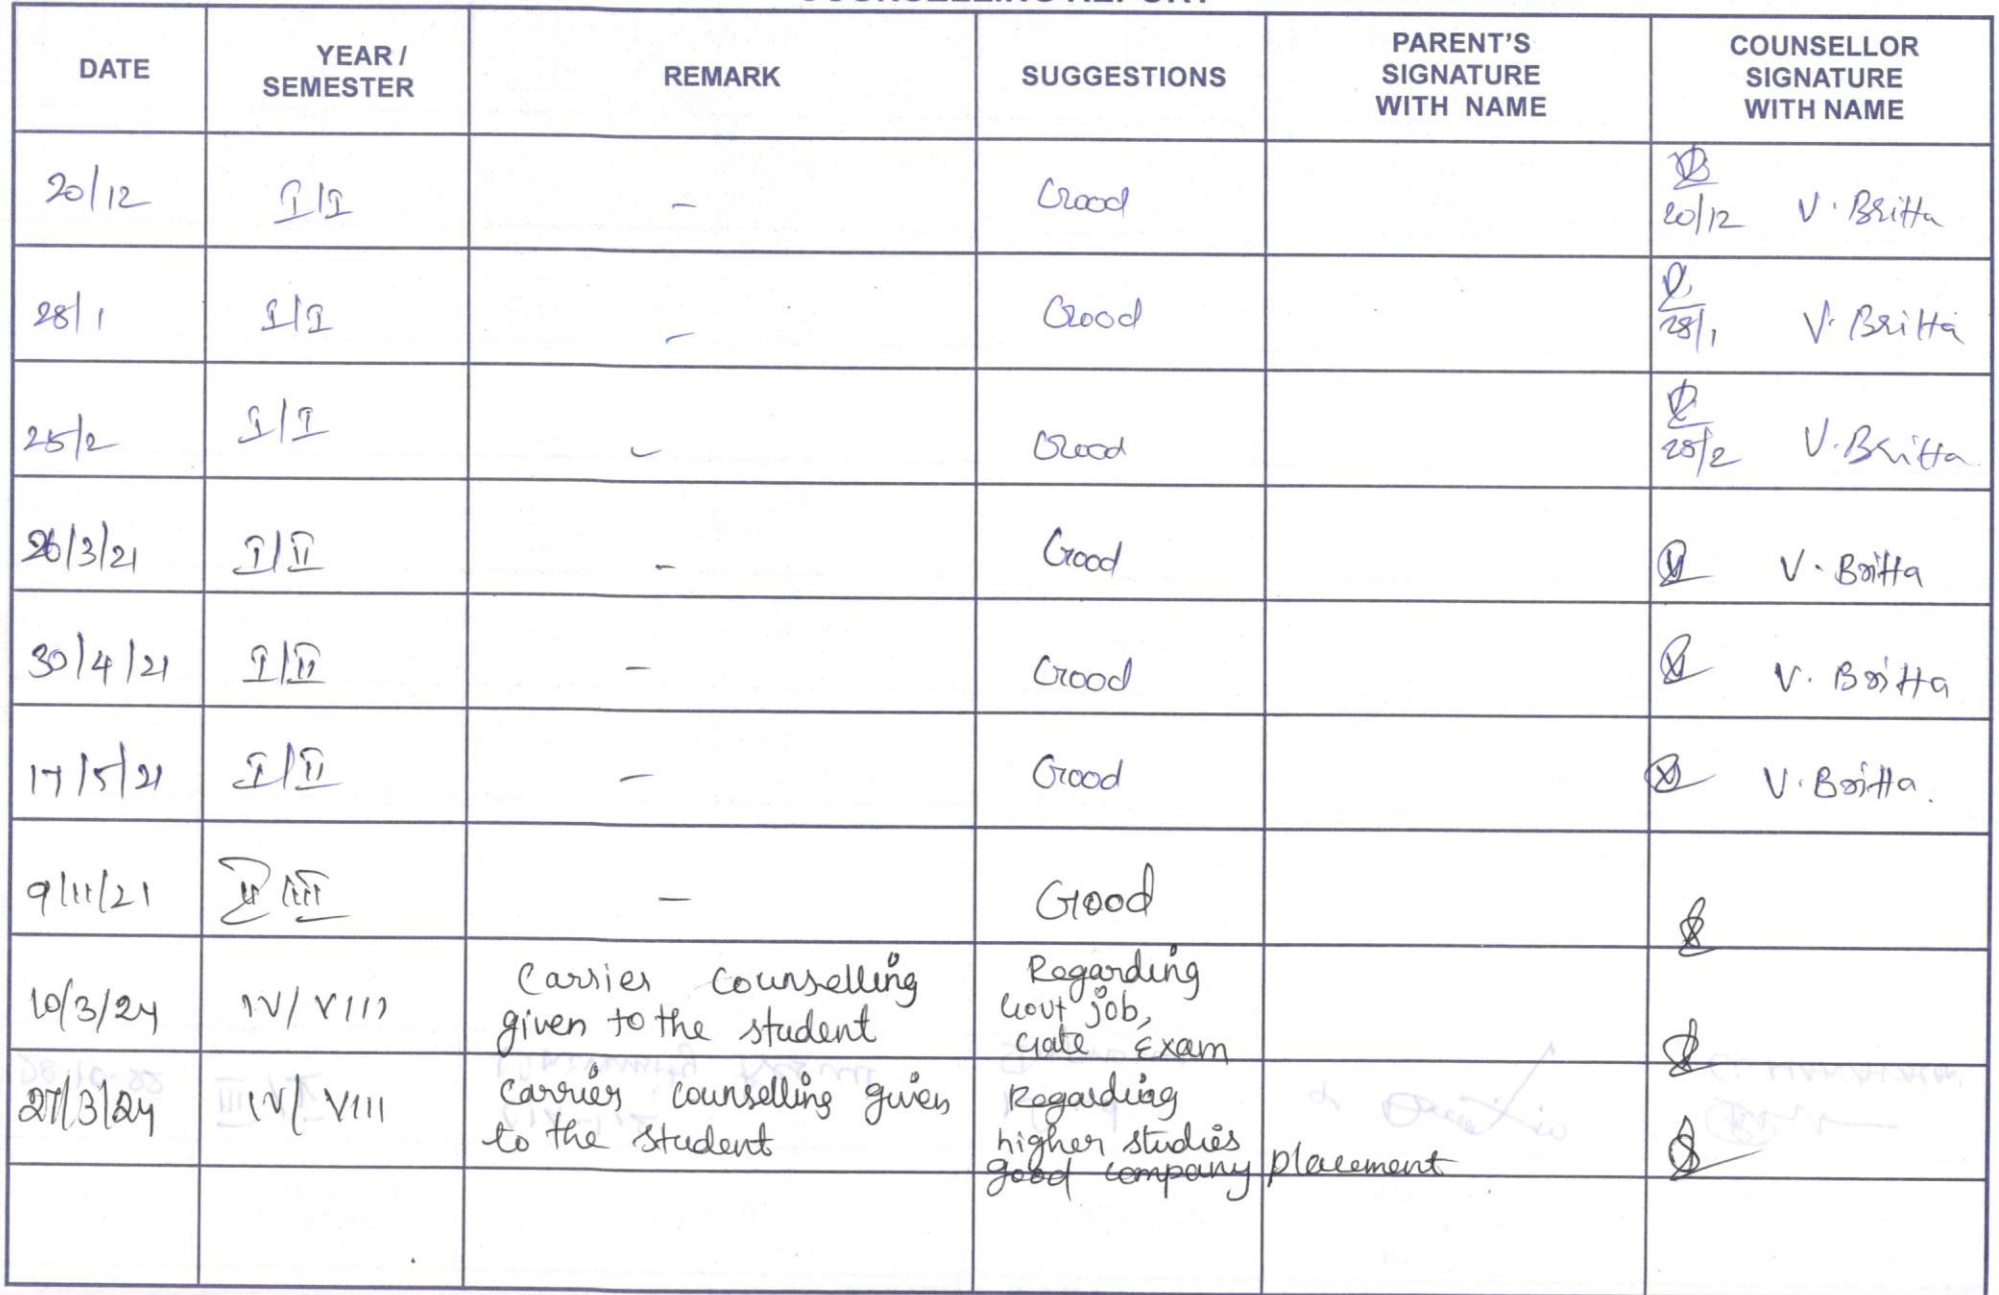 COUNSELLING REPORT
DATE YEAR / SEMESTER REMARK SUGGESTIONS PARENT'S SIGNATURE WITH NAME COUNSELLOR SIGNATURE WITH NAME
20/12 I/I - Good 20/12 V. Britta
28/1 I/I - Good 28/1 V. Britta
25/2 I/I - Good 25/2 V. Britta
26/3/21 I/II - Good V. Britta
30/4/21 I/II - Good V. Britta
17/5/21 I/II - Good V. Britta.
9/11/21 II/III - Good
10/3/24 IV/VIII Carrier Counselling given to the student Regarding Govt job, Gate Exam
27/3/24 IV/VIII Carrier Counselling given to the student Regarding higher studies good company placement